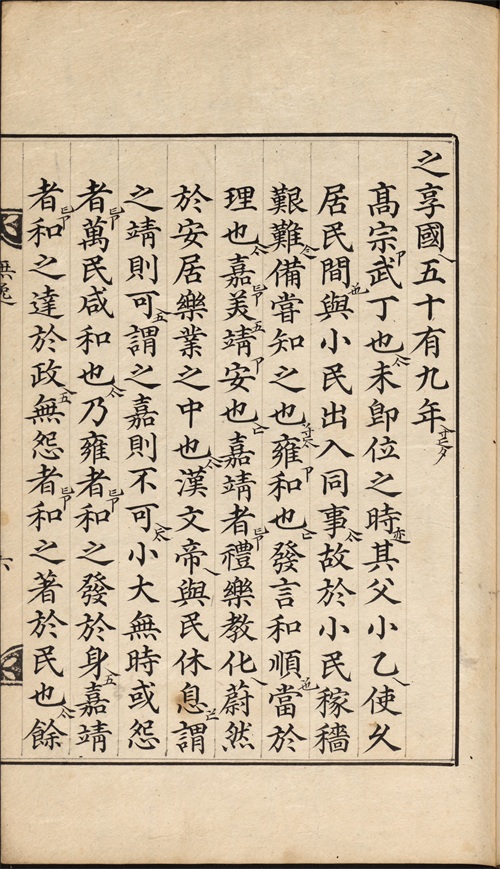 之享國五十有九年
髙宗武丁也未卽位之時其父小乙使乆
居民間與小民出入同事故於小民稼穡
艱難備嘗知之也雍和也發言和順當於
理也嘉美靖安也嘉靖者禮樂敎化蔚然
於安居樂業之中也漢文帝與民休息謂
之靖則可謂之嘉則不可小大無時或怨
者萬民咸和也乃雍者和之發於身嘉靖
者和之達於政無怨者和之著於民也餘
無逸
六